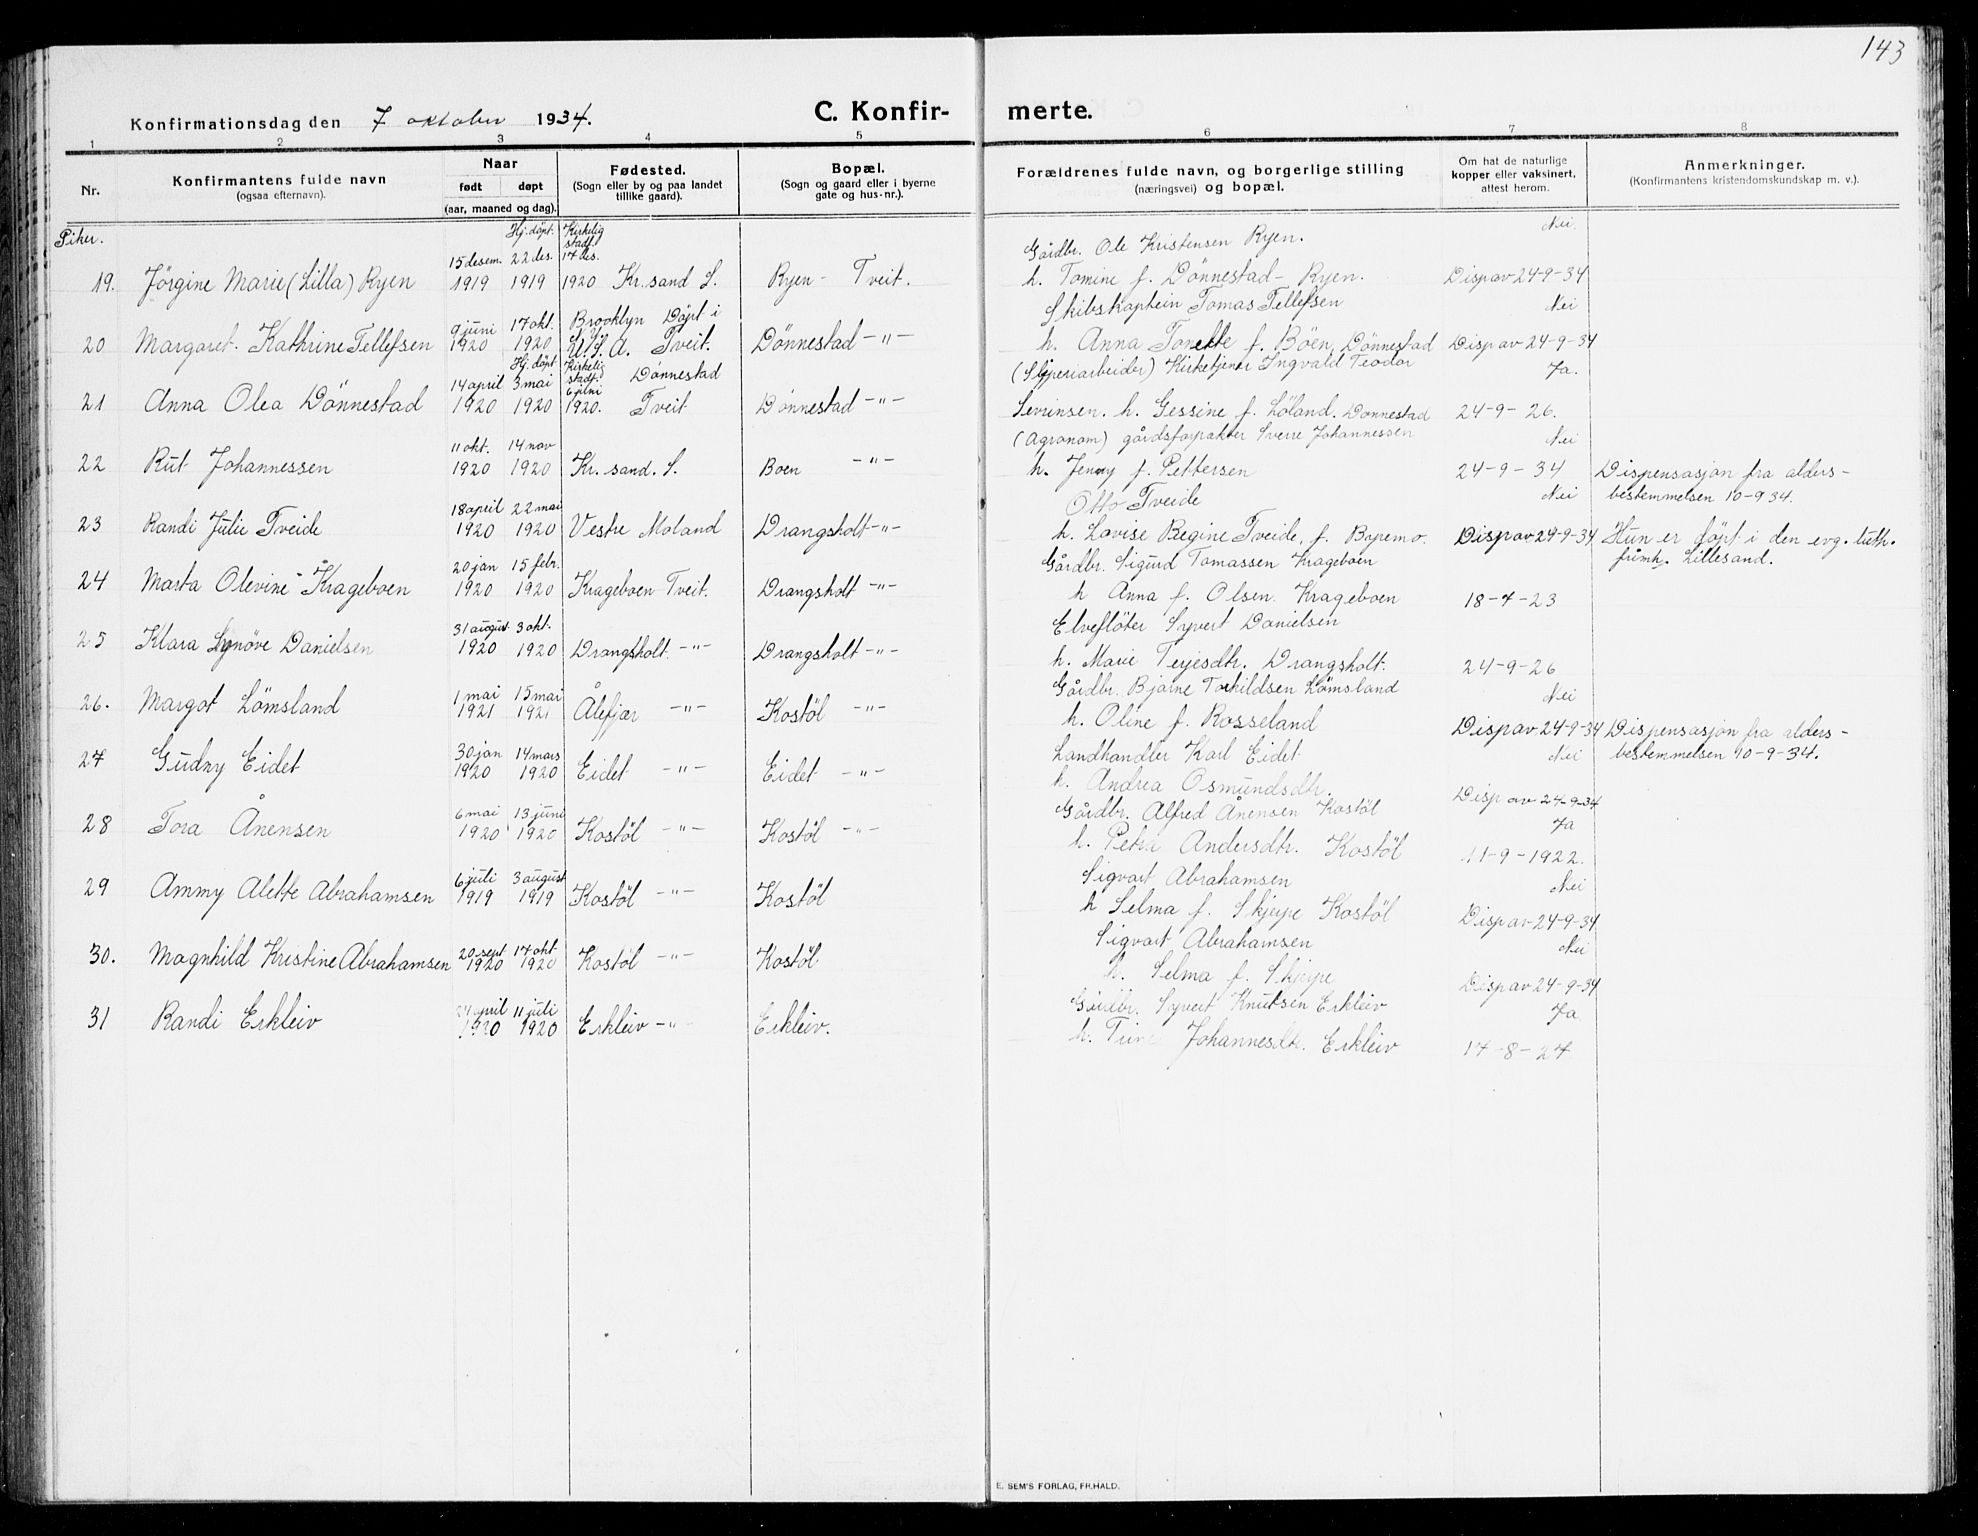 143
Konfirmationsdag den 7 oktober 1934.
C. Konfir-
merte.
1 2 3 4 5 6 7 8
Nr.
Konfirmantens fulde navn
(ogsaa efternavn).
Naar
født døpt
(aar, maaned og dag).
Fødested.
(Sogn eller by og paa landet
tillike gaard).
Bopæl.
(Sogn og gaard eller i byerne
gate og hus-nr.).
Forældrenes fulde navn, og borgerlige stilling
(næringsvei) og bopæl.
Om hat de naturlige
kopper eller vaksinert,
attest herom.
Anmerkninger.
(Konfirmantens kristendomskundskap m. v.).
Piker.
Hj. döpt. Kirkelig stadf. Gårdbr. Ole Kristensen Ryen. Nei.
15 desem. 22 des. 17 des.
19. Jörgine Marie (Lilla) Ryen 1919 1919 1920 Kr.sand S. Ryen - Tveit. h. Tomine f. Dönnestad - Ryen. Disp av 24-9-34
9 juni 17 okt. Brooklyn Döpt i Skibskaptein Tomas Tellefsen Nei
20 Margaret. Kathrine Tellefsen 1920 1920 N.Y. U.S.A. Tveit. Dönnestad -"- h. Anna Tonette f. Böen, Dönnestad Disp av 24-9-34
Hj. döpt Kirkelig stadf. Dönnestad (Sliperiarbeider) Kirketjener Ingvald Teodor Ja.
14 april 3 mai 6 juni
21 Anna Olea Dönnestad 1920 1920 1920. Tveit Dönnestad -"- Sevrinsen. h. Gessine f. Löland. Dönnestad 24-9-26.
11 okt. 14 nov (Agronom) gårdsforpakter Sverre Johannessen Nei
22 Rut Johannessen 1920 1920 Kr. sand. S. Boen -"- h. Jenny f. Pettersen 24-9-34 Dispensasjon fra alders-
18 april 22 mai Otto Tveide Nei bestemmelsen 10-9 34.
23 Randi Julie Tveide 1920 1920 Vestre Moland Drangsholt -"- h. Lovise Regine Tveide, f. Bspemo. Disp av 24-9-34 Hun er döpt i den evg. luth.
20 jan 15 febr. Gårdbr. Sigurd Tomassen Krageboen frimh. Lillesand.
24 Marta Olevine Krageboen 1920 1920 Krageboen Tveit. Drangsholt -"- h Anna f. Olsen. Krageboen 18-7-23
31 august 3 okt. Elveflöter Syvert Danielsen
25 Klara Synöve Danielsen 1920 1920 Drangsholt -"- Drangsholt -"- h. Marie Terjesdtr. Drangsholt. 24-9-26
1 mai 15 mai Gårdbr. Bjarne Torkildsen Lömsland Nei
26. Margot Lömsland 1921 1921 Ålefjær -"- Kostöl -"- h. Oline f. Rosseland Disp av 24-9-34 Dispensasjon fra alders-
30 jan 14 mars Landhandler Karl Eidet Nei bestemmelsen 10-9-34.
27 Gudny Eidet 1920 1920 Eidet -"- Eidet -"- h. Andrea Osmundsdtr. Disp av 24-9-34
6 mai 13 juni Gårdbr. Alfred Ånensen Kostöl Ja
28 Tora Ånensen 1920 1920 Kostöl -"- Kostöl -"- h. Petra Andersdtr. Kostöl 11-9-1922.
6 juli 3 august Sigvart Abrahamsen Nei
29 Ammy Alette Abrahamsen 1919 1919 Kostöl -"- Kostöl h Selma f. Skjerpe Kostöl Disp av 24-9-34
20 sept 17 okt Sigvart Abrahamsen Nei
30. Magnhild Kristine Abrahamsen 1920 1920 Kostöl -"- Kostöl h. Selma f. Skjerpe Disp av 24-9-34
24 april 11 juli Gårdbr. Syvert Knutsen Erkleiv Ja
31 Randi Erkleiv 1920 1920 Erkleiv -"- Erkleiv. h. Trine Johannesdtr. Erkleiv 17-8-27
E. SEM'S FORLAG, FR.HALD.